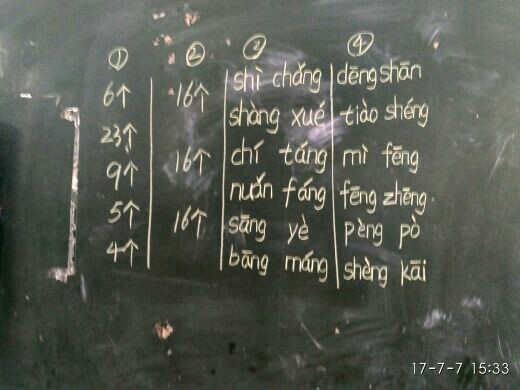 ①
6个
23个
9个
5个
4个
②
16个
16个
16个
③
shì chǎng
shàng xué
chí táng
nuǎn fáng
sāng yè
bāng máng
④
dēng shān
tiào shéng
mì fēng
fēng zhēng
pèng pò
shèng kāi
17-7-7 15:33